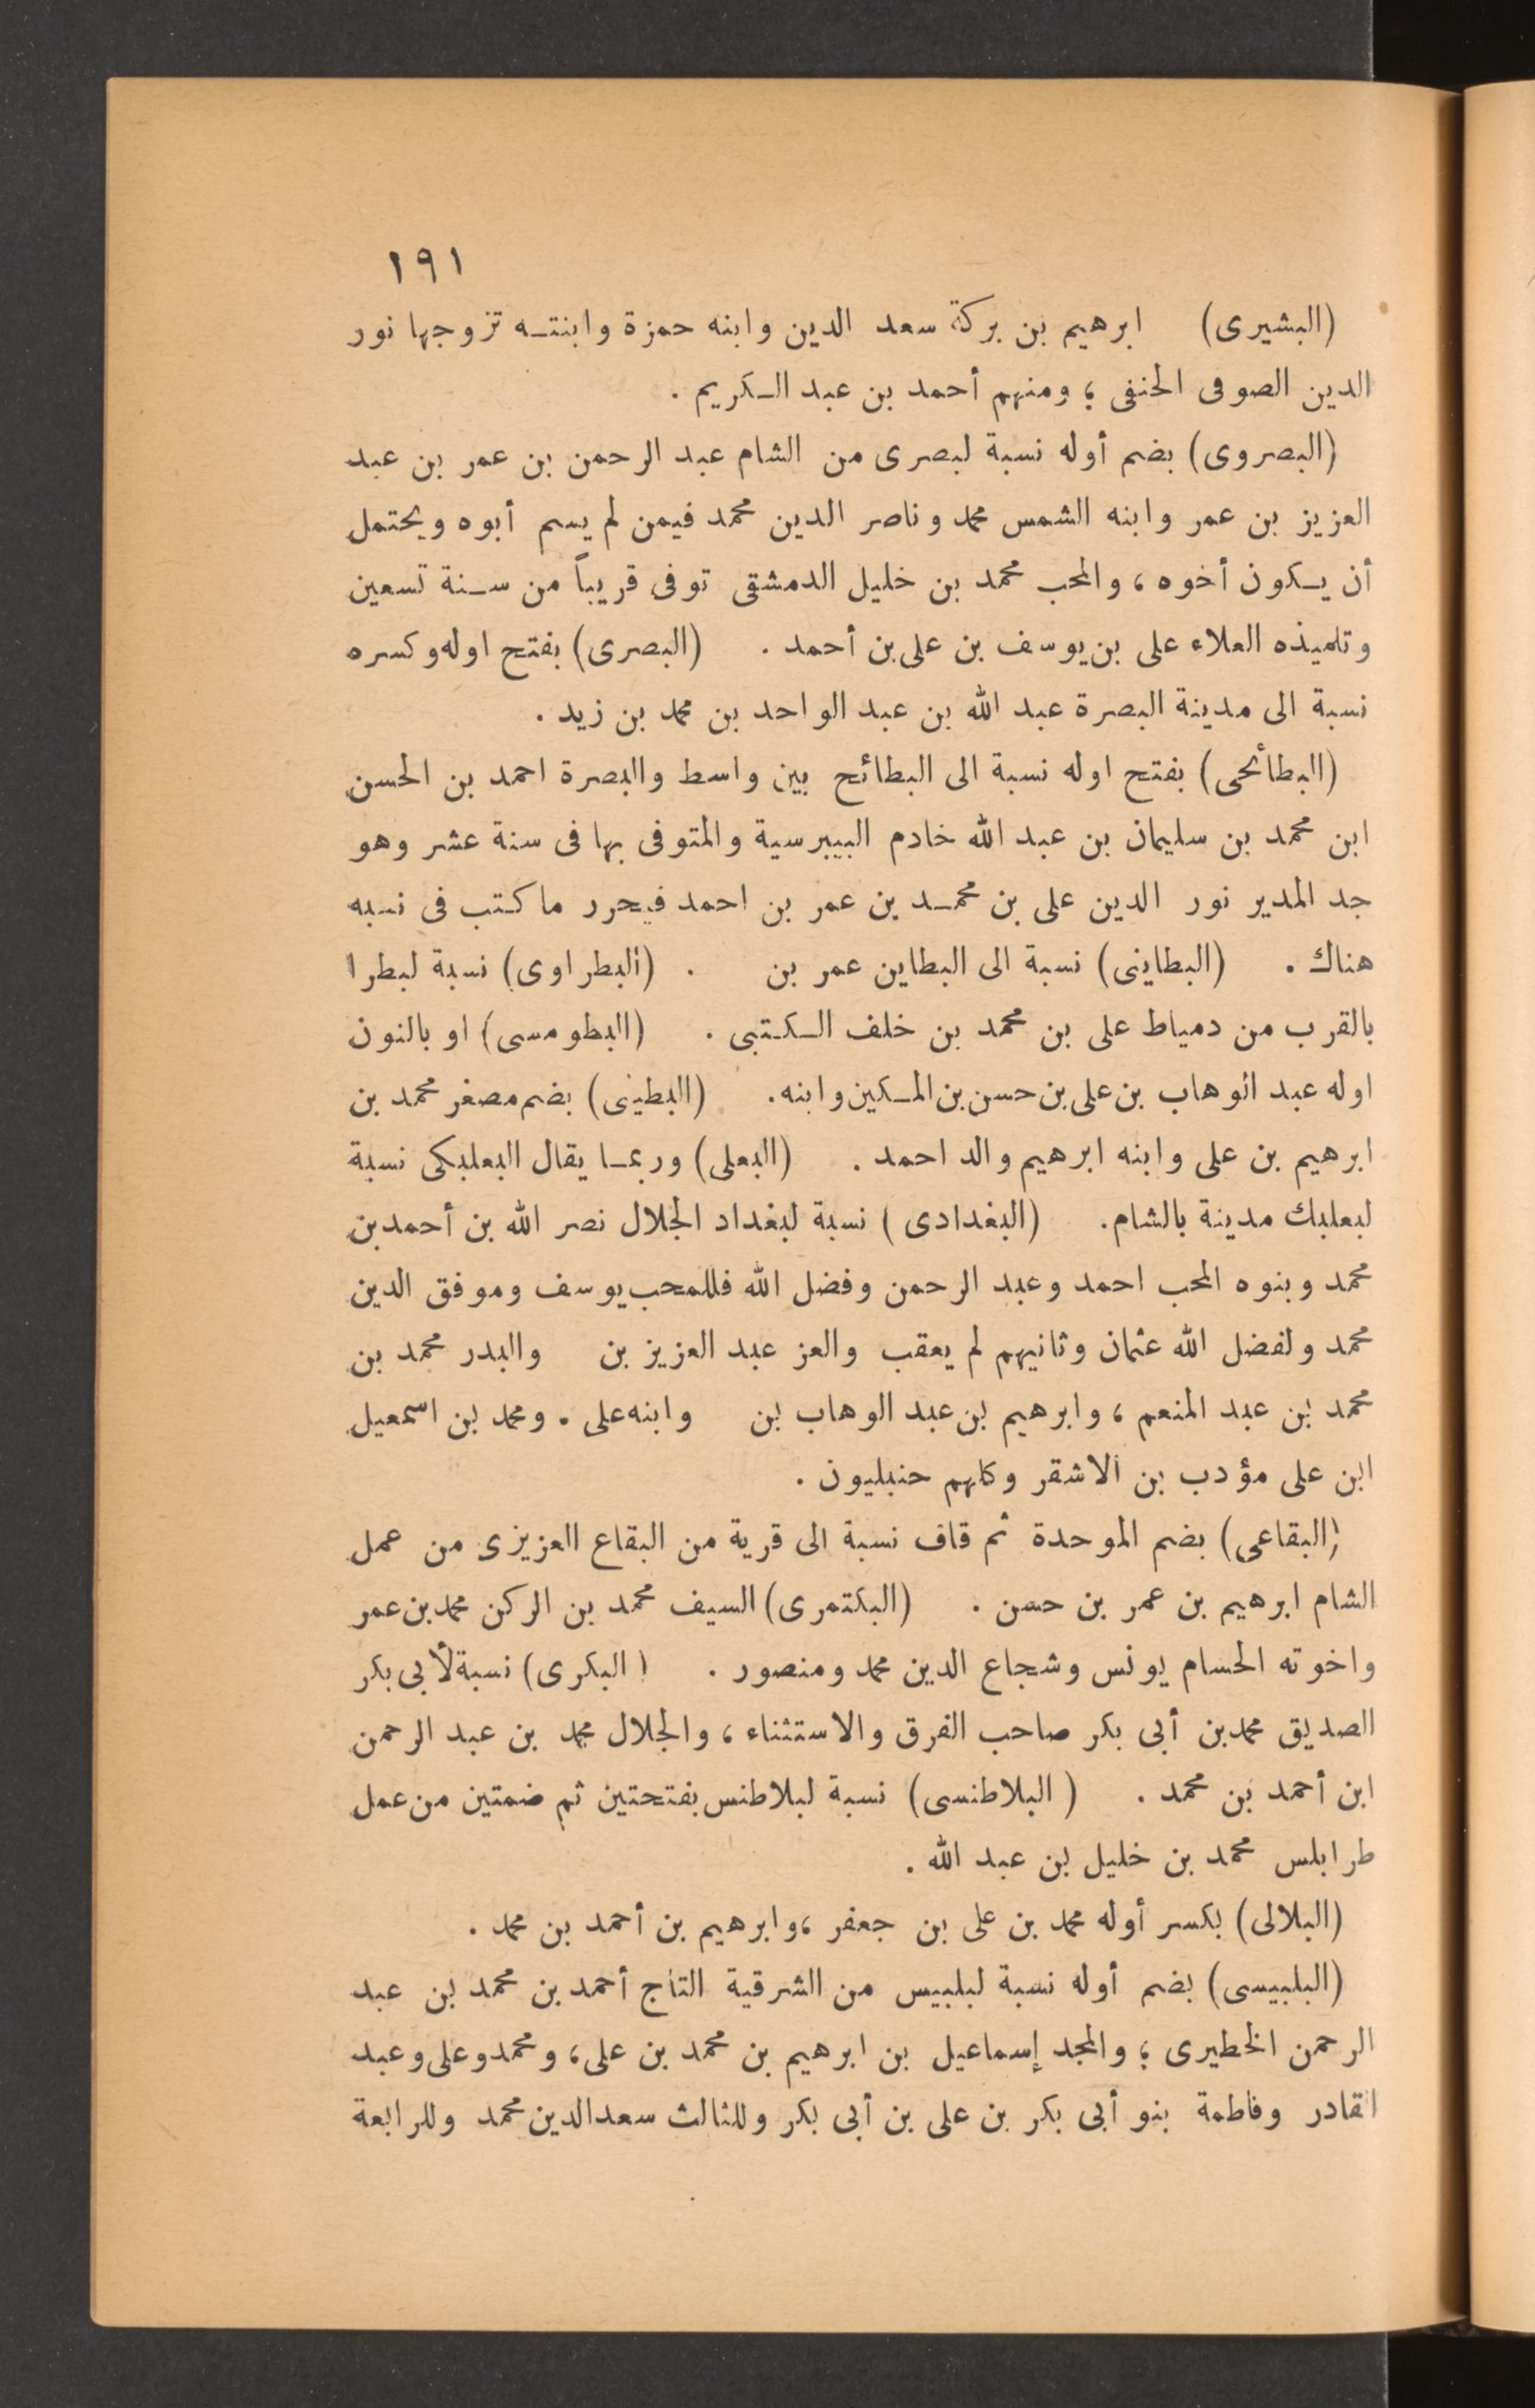 ١٩١
(البشيرى) ابرهيم بن بركة سعد الدين وابنه حمزة وابنتـه تزوجها نور
الدين الصوفى الحنفى ؛ ومنهم أحمد بن عبد الـكريم .
(البصروى) بضم أوله نسبة لبصرى من الشام عبد الرحمن بن عمر بن عبد
العزيز بن عمر وابنه الشمس محمد وناصر الدين محمد فيمن لم يسم أبوه ويحتمل
أن يـكون أخوه ، والمحب محمد بن خليل الدمشقى توفى قريباً من سـنة تسعين
وتلميذه العلاء على بن يوسف بن على بن أحمد . (البصرى) بفتح اوله وكسره
نسبة الى مدينة البصرة عبد الله بن عبد الواحد بن محمد بن زيد .
(البطأئحى) بفتح اوله نسبة الى البطائح بين واسط والبصرة احمد بن الحسن
ابن محمد بن سليمان بن عبد الله خادم البيبرسية والمتوفى بها فى سنة عشر وهو
جد المدير نور الدين على بن محمـد بن عمر بن احمد فيحرر ما كتب فى نسبه
هناك . (البطاينى) نسبة الى البطاين عمر بن . (البطراوى) نسبة لبطرا
بالقرب من دمياط على بن محمد بن خلف الـكـتبى . (البطومسى) او بالنون
اوله عبد الوهاب بن على بن حسن بن المـكين وابنه . (البطينى) بضم مصغر محمد بن
ابرهيم بن على وابنه ابرهيم والد احمد . (البعلى) وربمـا يقال البعلبكى نسبة
لبعلبك مدينة بالشام . (البغدادى) نسبة لبغداد الجلال نصر الله بن أحمد بن
محمد وبنوه المحب احمد وعبد الرحمن وفضل الله فللمحب يوسف وموفق الدين
محمد ولفضل الله عثمان وثانيهم لم يعقب والعز عبد العزيز بن والبدر محمد بن
محمد بن عبد المنعم ، وابرهيم بن عبد الوهاب بن وابنه على . ومحمد بن اسمعيل
ابن على مؤدب بن الاشقر وكلهم حنبليون .
(البقاعى) بضم الموحدة ثم قاف نسبة الى قرية من البقاع العزيزى من عمل
الشام ابرهيم بن عمر بن حسن . (البكتمرى) السيف محمد بن الركن محمد بن عمر
واخوته الحسام يونس وشجاع الدين محمد ومنصور . (البكرى) نسبة لأبى بكر
الصديق محمد بن أبى بكر صاحب الفرق والاستثناء ، والجلال محمد بن عبد الرحمن
ابن أحمد بن محمد . (البلاطنسى) نسبة لبلاطنس بفتحتين ثم ضمتين من عمل
طرابلس محمد بن خليل بن عبد الله .
(البلالى) بكسر أوله محمد بن على بن جعفر ، وابرهيم بن أحمد بن محمد .
(البلبيسى) بضم أوله نسبة لبلبيس من الشرقية التاج أحمد بن محمد بن عبد
الرحمن الخطيرى ؛ والمجد إسماعيل بن ابرهيم بن محمد بن على ، ومحمد وعلى وعبد
القادر وفاطمة بنو أبى بكر بن على بن أبى بكر وللثالث سعد الدين محمد وللرابعة